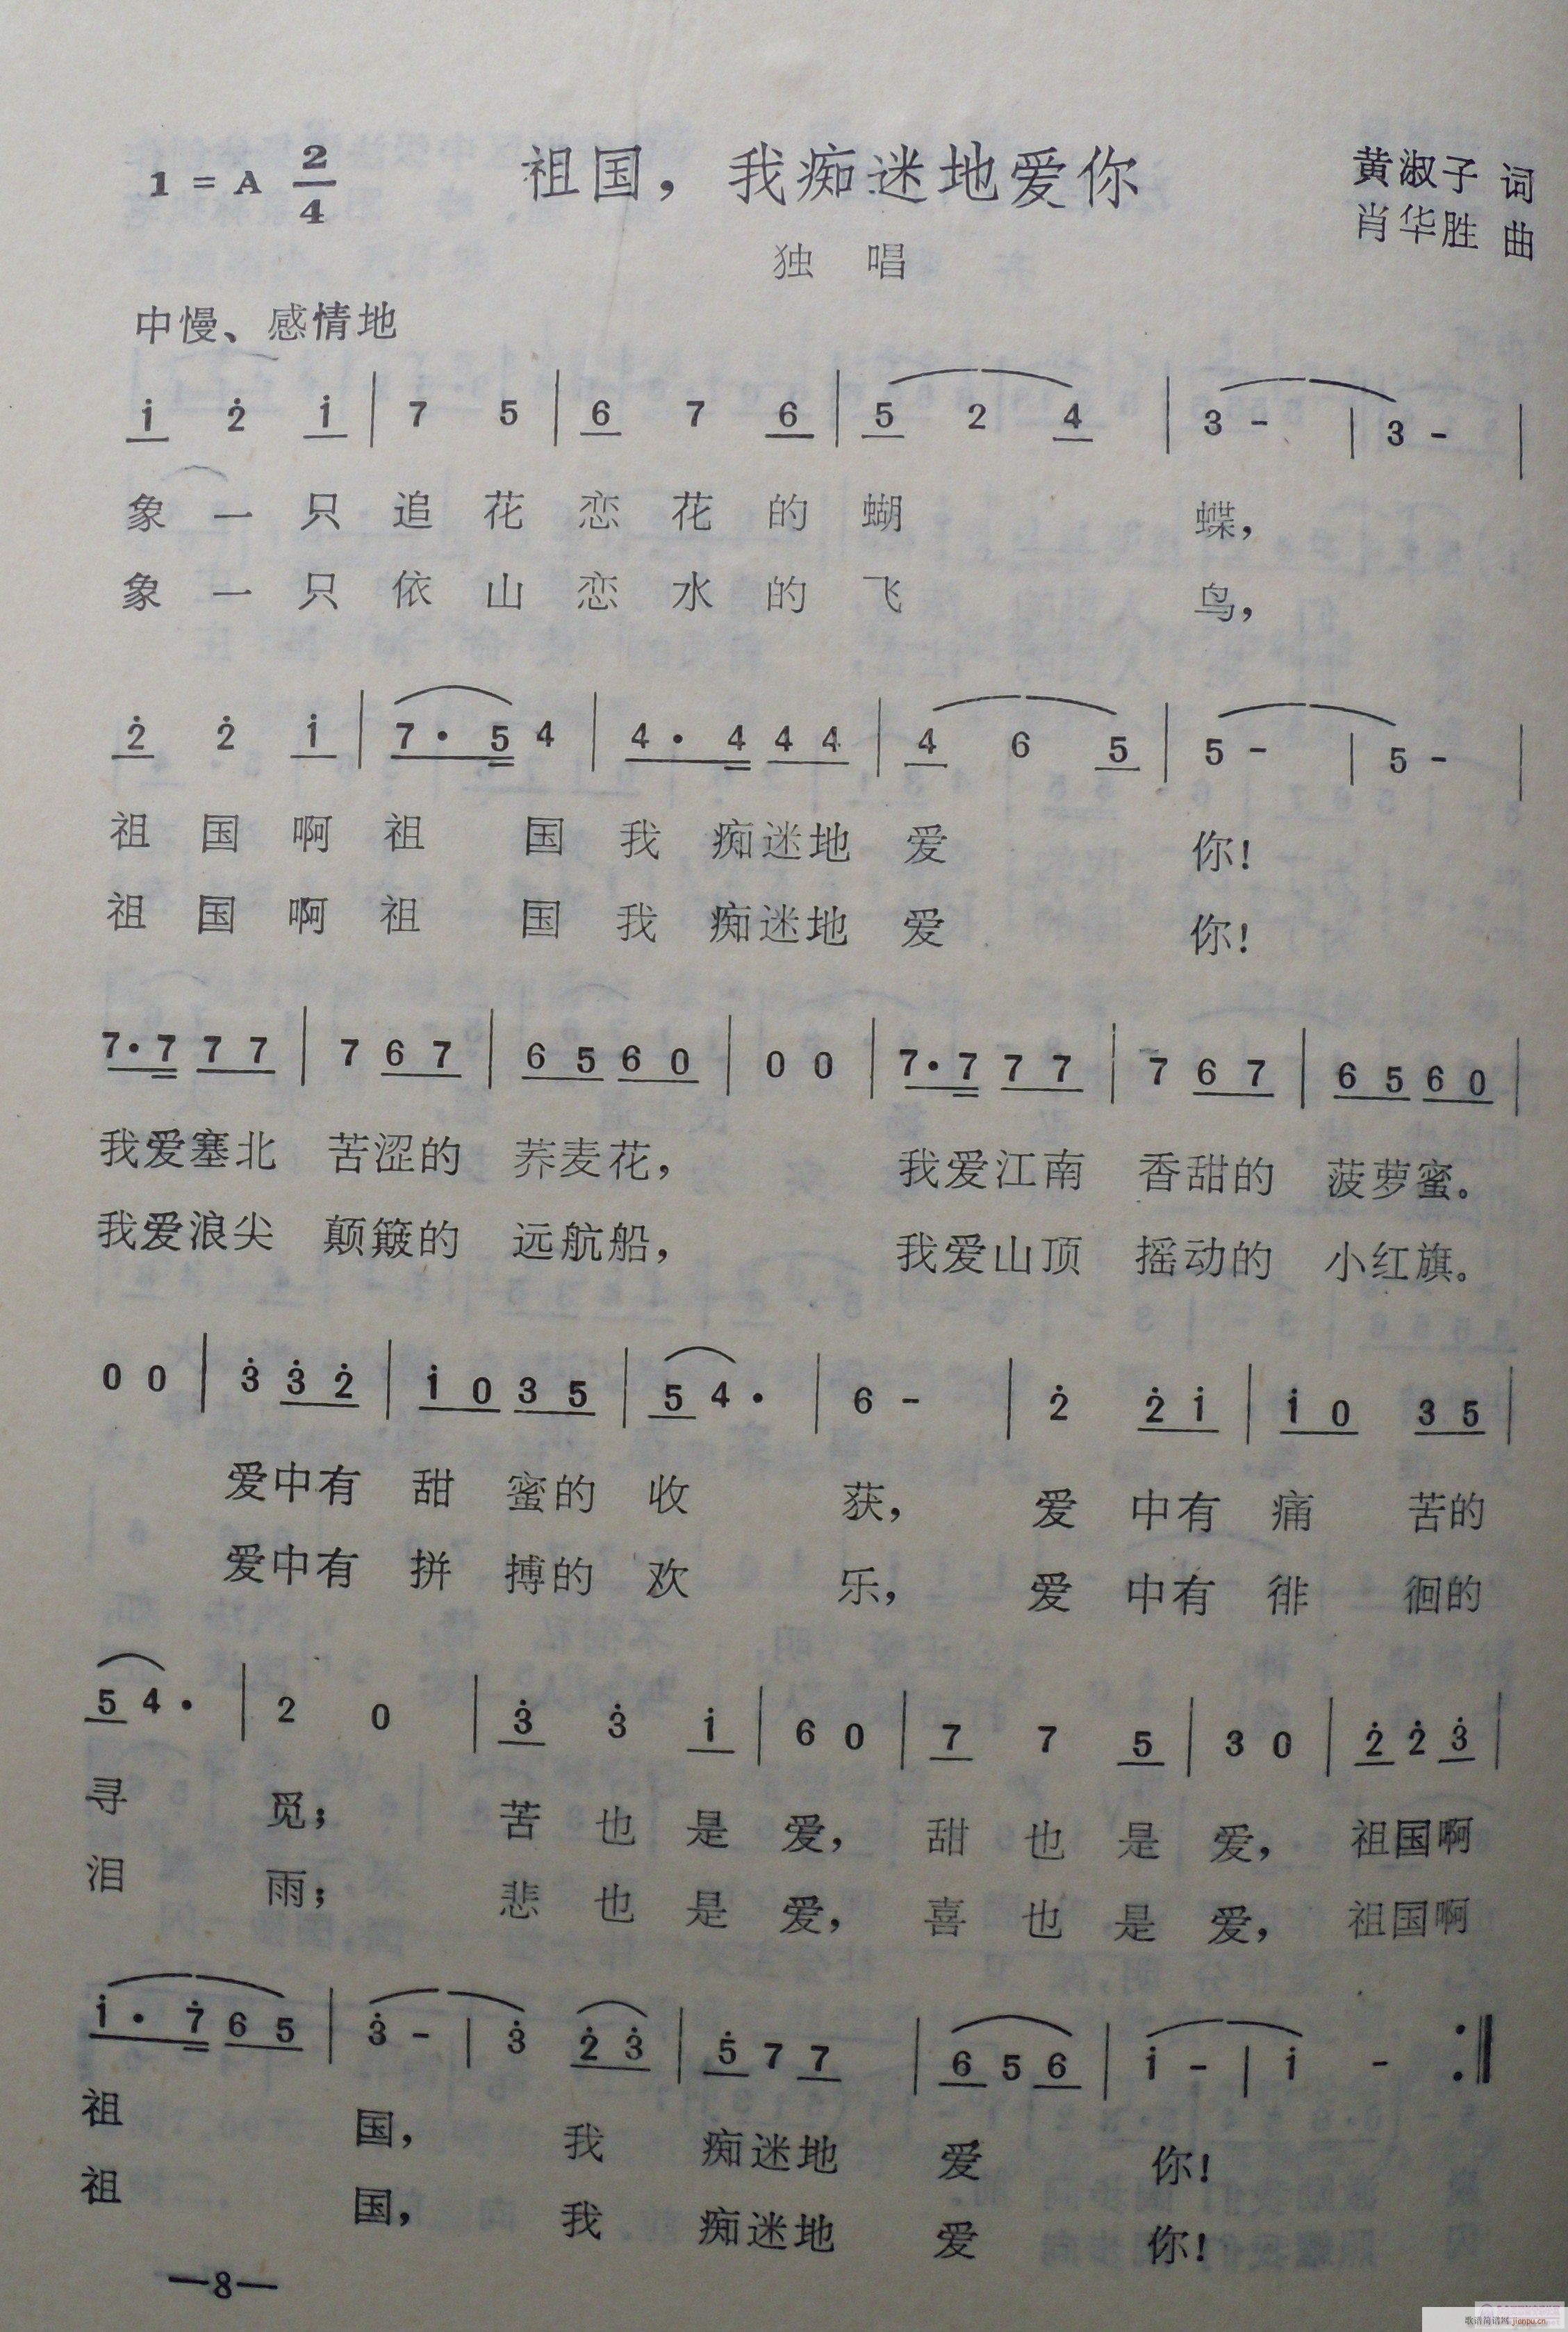 1 = A 2/4 祖国，我痴迷地爱你 黄淑子 词
肖华胜 曲
独 唱
中慢、感情地
i 2̇ i | 7 5 | 6 7 6 | 5 2 4 | 3 - | 3 - |
象 一 只 追 花 恋 花 的 蝴 蝶，
象 一 只 依 山 恋 水 的 飞 鸟，
2̇ 2̇ i | 7 · 5 4 | 4 · 4 4 4 | 4 6 5 | 5 - | 5 - |
祖 国 啊 祖 国 我 痴迷地 爱 你！
祖 国 啊 祖 国 我 痴迷地 爱 你！
7·7 7 7 | 7 6 7 | 6 5 6 0 | 0 0 | 7·7 7 7 | 7 6 7 | 6 5 6 0 |
我爱塞北 苦涩的 荞麦花， 我爱江南 香甜的 菠萝蜜。
我爱浪尖 颠簸的 远航船， 我爱山顶 摇动的 小红旗。
0 0 | 3̇ 3̇ 2̇ | i 0 3 5 | 5 4 · | 6 - | 2̇ 2̇ i | i 0 3 5 |
爱中有 甜 蜜的 收 获， 爱 中有 痛 苦的
爱中有 拼 搏的 欢 乐， 爱 中有 徘 徊的
5 4 · | 2 0 | 3̇ 3̇ i | 6 0 | 7 7 5 | 3 0 | 2̇ 2̇ 3̇ |
寻 觅； 苦 也 是 爱， 甜 也 是 爱， 祖国啊
泪 雨； 悲 也 是 爱， 喜 也 是 爱， 祖国啊
i · 7̇ 6 5 | 3̇ - | 3̇ 2̇ 3̇ | 5̇ 7 7 | 6 5 6 | i - | i - :‖
祖 国， 我 痴迷地 爱 你！
祖 国， 我 痴迷地 爱 你！
—8—
歌谱简谱网 jianpu.cn